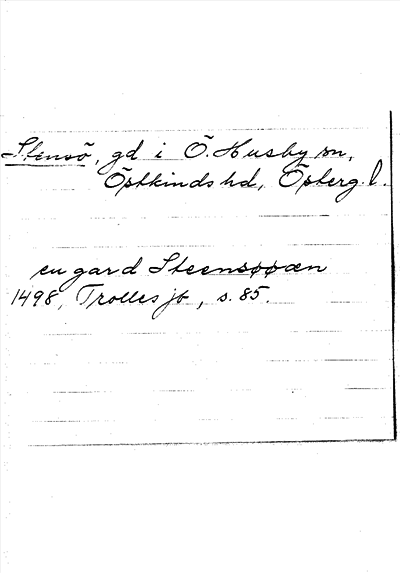 Stensö, gd i Ö. Husby sn,
Östkinds hd, Österg. l.
en gard Steensøøæn
1498, Trolles jb, s. 85.